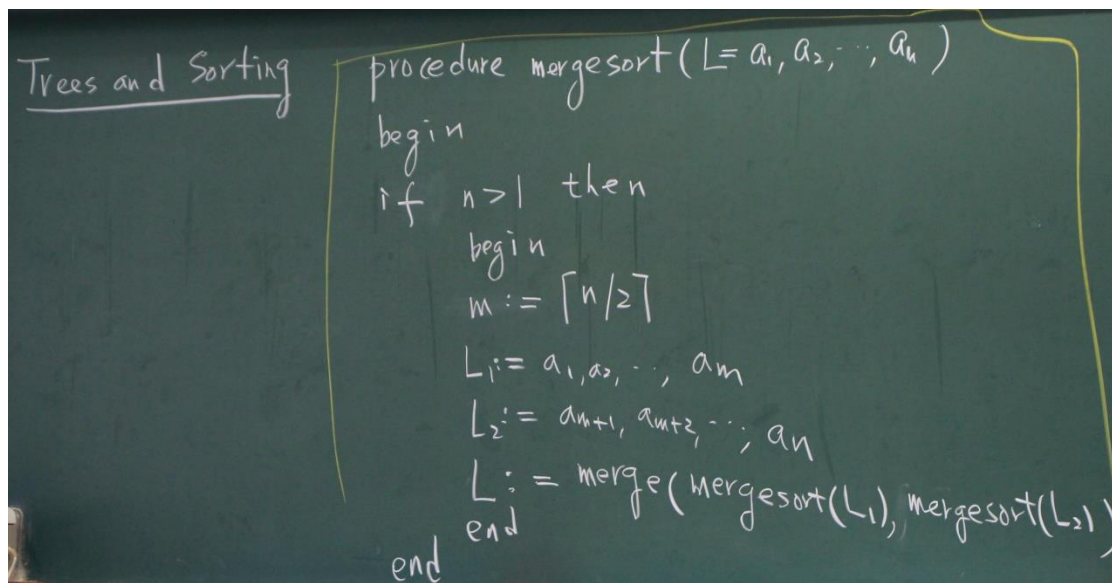 Trees and Sorting
procedure mergesort (L = a₁, a₂, ..., aₙ)
begin
if n > 1 then
begin
m := ⌈n/2⌉
L₁ := a₁, a₂, ..., aₘ
L₂ := aₘ₊₁, aₘ₊₂, ..., aₙ
L := merge(mergesort(L₁), mergesort(L₂))
end
end